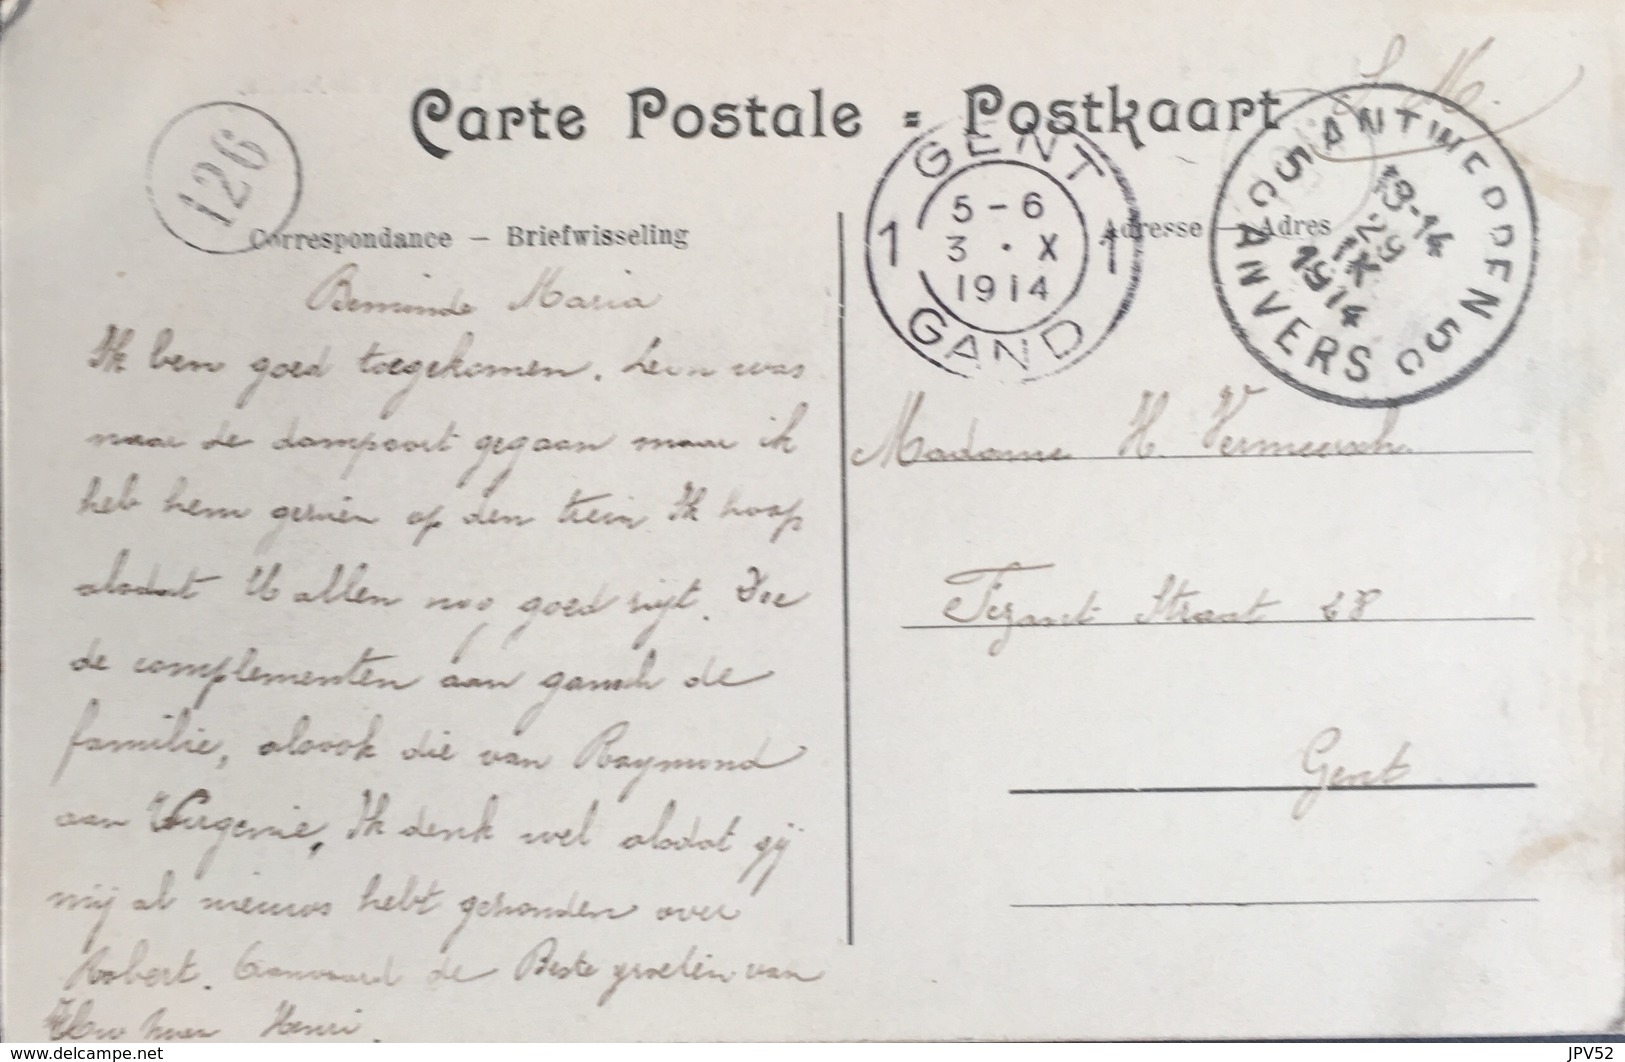 S. M.
Carte Postale = Postkaart
126
GENT
1 5-6 1
3 · X
1914
GAND
ANTWERPEN 5
13-14
29
IX
1914
ANVERS
Correspondance — Briefwisseling
Adresse — Adres
Beminde Maria
Ik ben goed toegekomen. Leon was
naar de dampoort gegaan maar ik
heb hem gezien op den trein Ik hoop
alsdat U allen nog goed zijt. Doe
de complementen aan gansch de
familie, alsook die van Raymond
aan Virgenie, Ik denk wel alsdat gij
mij al nieuws hebt gezonden over
Robert. Aanvaard de Beste groeten van
Uw Henri.
Madame H. Vermeersch
Straat 68
Gent
JPV52
www.delcampe.net